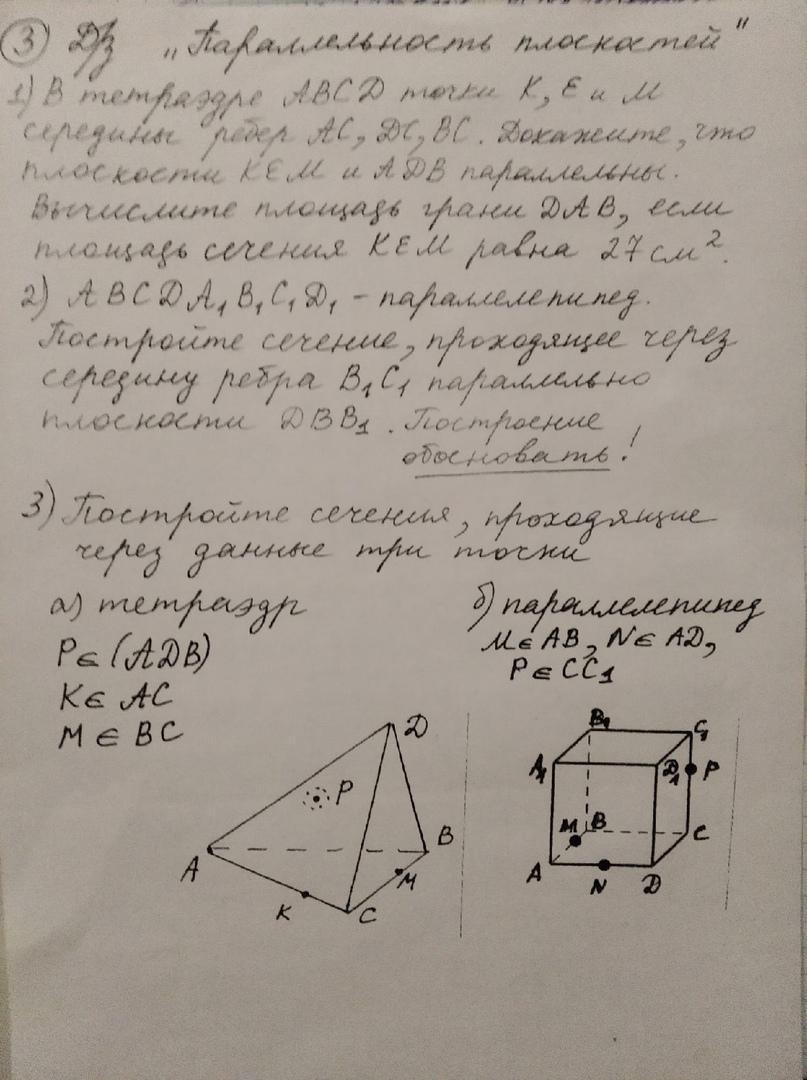 ③ Д/з „Параллельность плоскостей"
1) В тетраэдре ABCD точки K, E и M
середины ребер AC, DC, BC. Докажите, что
плоскости KEM и ADB параллельны.
Вычислите площадь грани DAB, если
площадь сечения KEM равна 27 см².
2) ABCDA₁B₁C₁D₁ – параллелепипед.
Постройте сечение, проходящее через
середину ребра B₁C₁ параллельно
плоскости DBB₁. Построение
обосновать!
3) Постройте сечения, проходящие
через данные три точки
а) тетраэдр
P∈(ADB)
K∈ AC
M ∈ BC
б) параллелепипед
M∈AB, N∈AD,
P∈CC₁
D
P
A
B
M
K
C
B₁
C₁
A₁
D₁
P
M
B
C
A
N
D